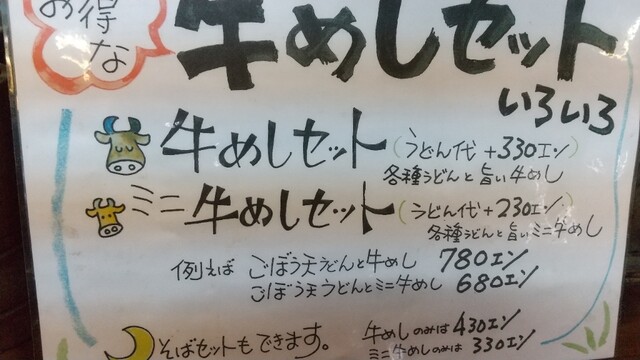 お得な
牛めしセット
いろいろ
牛めしセット(うどん代+330エン)
各種うどんと旨い牛めし
ミニ牛めしセット(うどん代+230エン)
各種うどんと旨いミニ牛めし
例えば ごぼう天うどんと牛めし 780エン
ごぼう天うどんとミニ牛めし 680エン
そばセットもできます。
牛めしのみは430エン
ミニ牛めしのみは330エン